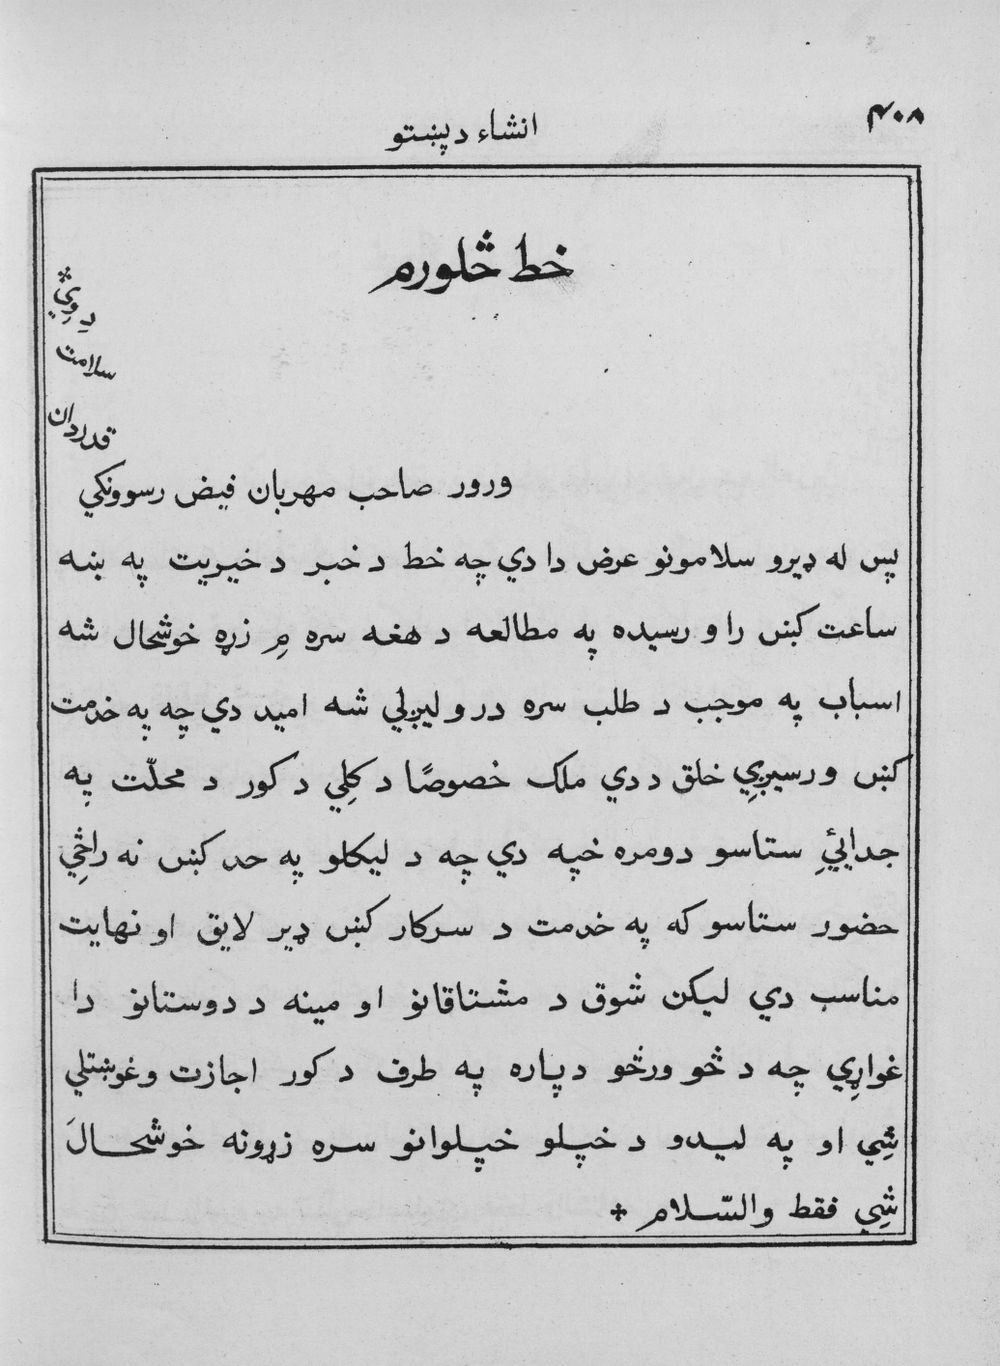 ۴۰۸
انشاء د پښتو
خط څلورم
ورور صاحب مهربان فیض رسوونکي
قدردان
سلامت
دِ وِي
پس له ډیرو سلامونو عرض دا دي چه خط د خبر د خیریت په ښه
ساعت کښ را و رسیده په مطالعه د هغه سره مِ زړه خوشحال شه
اسباب په موجب د طلب سره در و لیږلي شه امید دي چه په خدمت
کښ و رسیږِي خلق د دي ملک خصوصًا د کلِي د کور د محلّت په
جدایئِ ستاسو دومره خپه دي چه د لیکلو په حد کښ نه راځِي
حضور ستاسو که په خدمت د سرکار کښ ډیر لایق او نهایت
مناسب دي لیکن شوق د مشتاقانو او مینه د دوستانو دا
غواړِي چه د څو ورځو د پاره په طرف د کور اجازت وغوښتلي
شِي او په لیدو د خپلو خپلوانو سره زړونه خوشحالَ
شِي فقط والسّلام